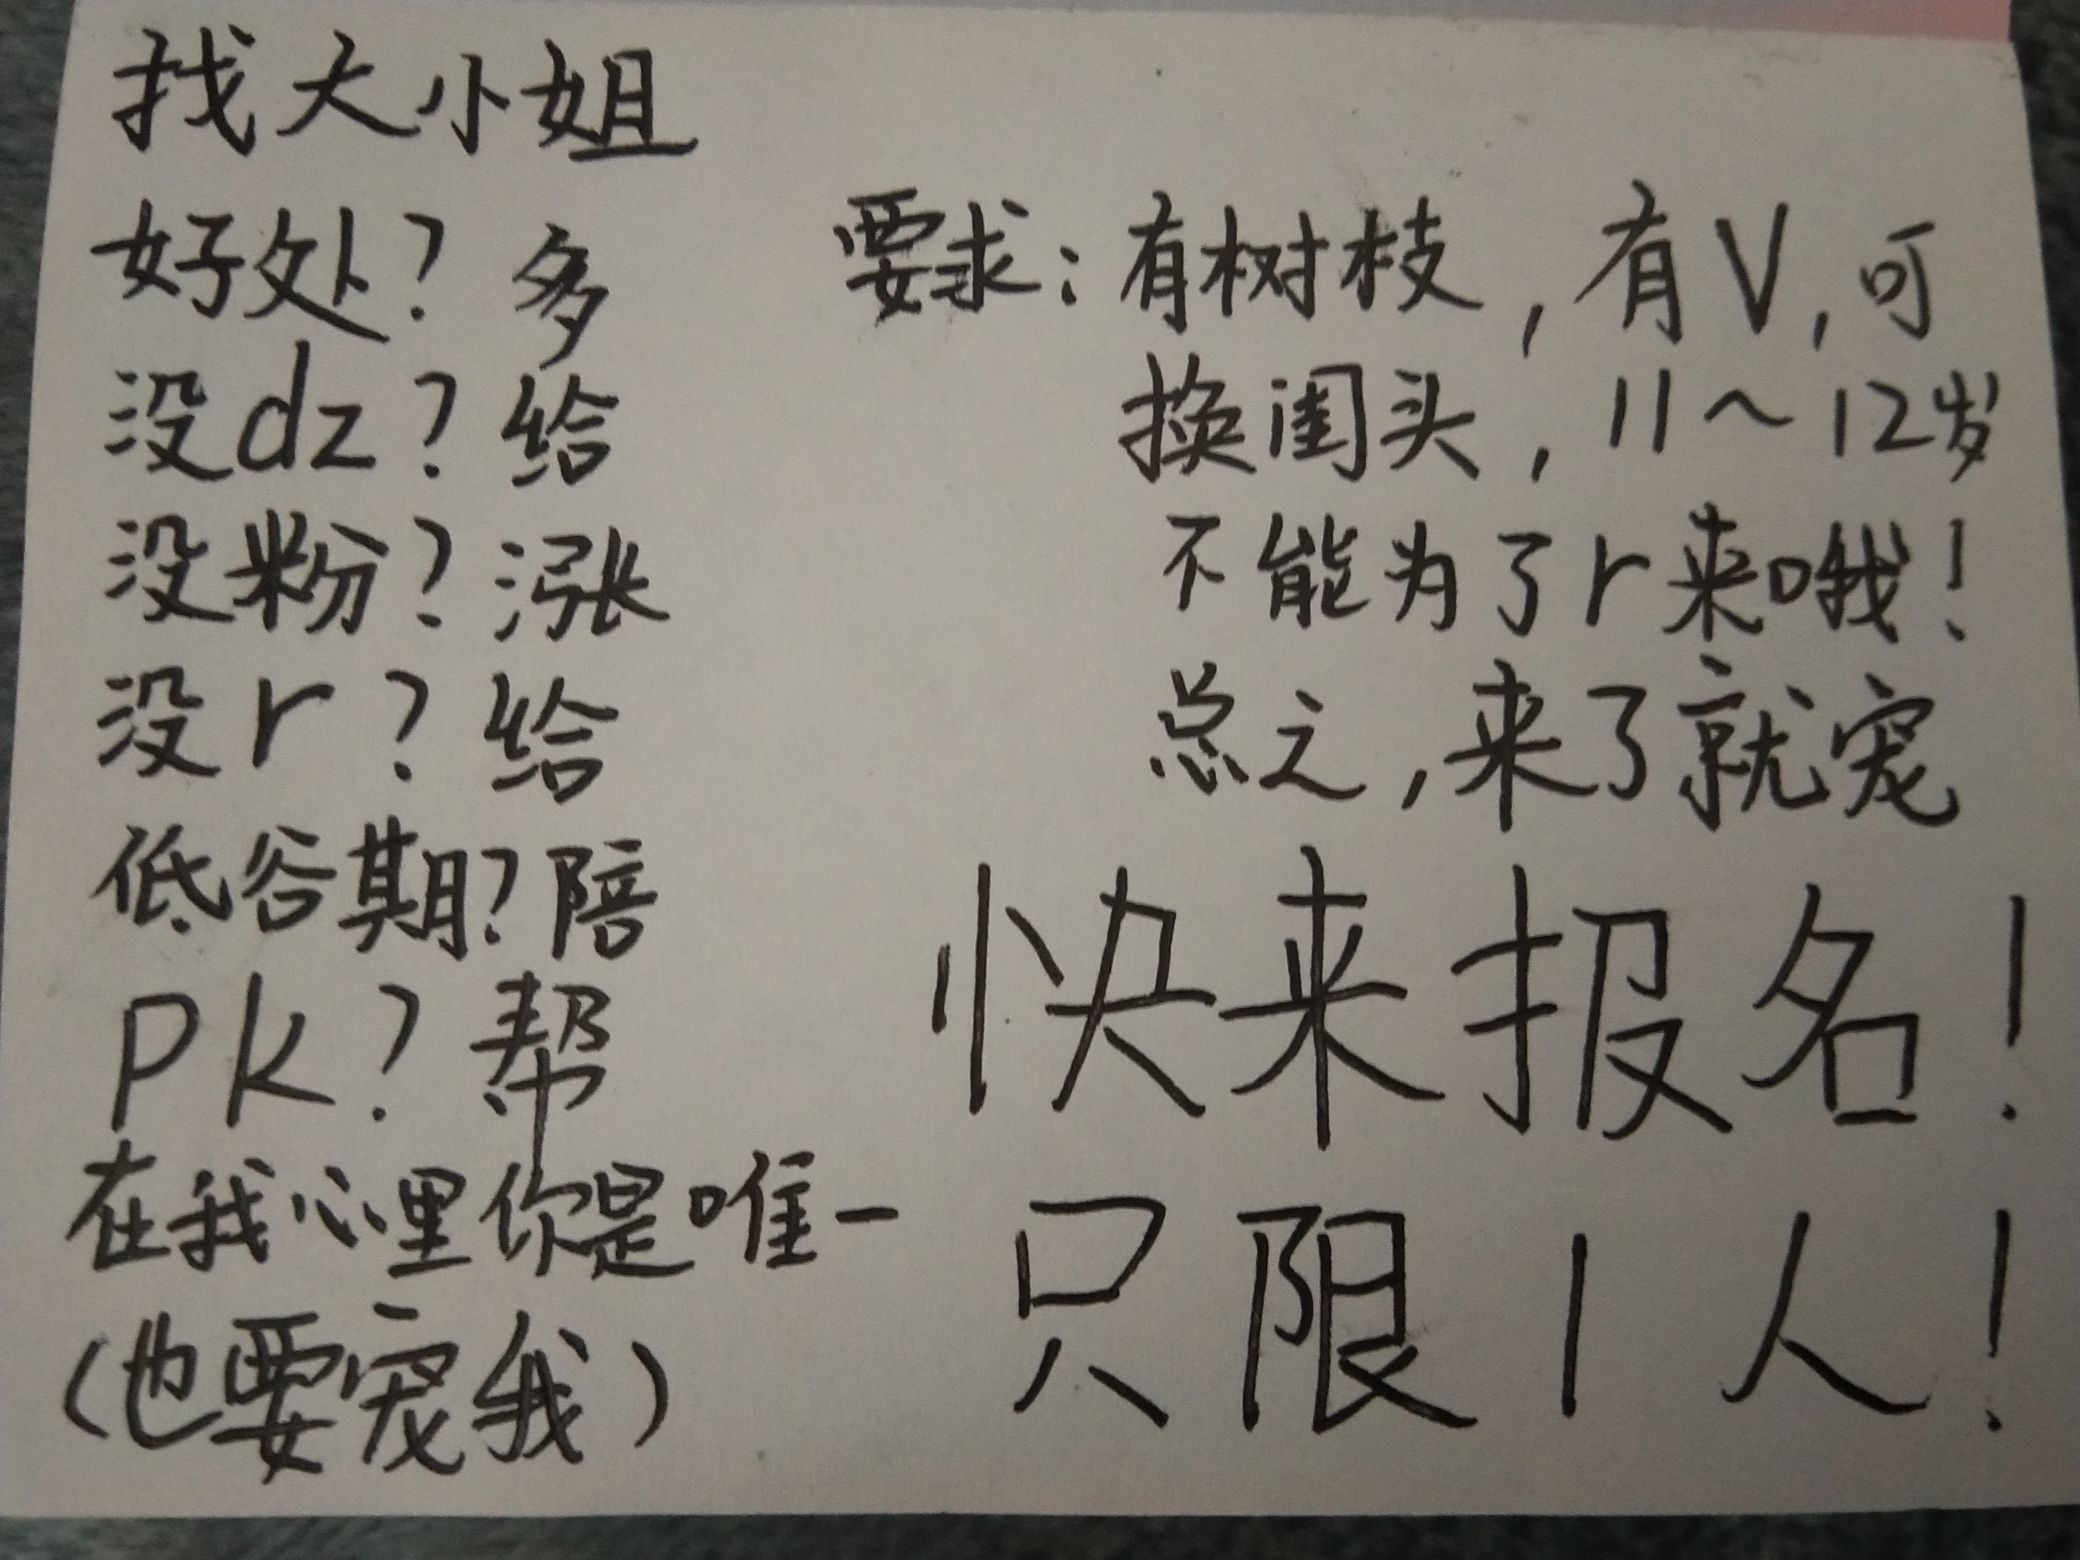 找大小姐
好处？多
没dz？给
没粉？涨
没r？给
低谷期？陪
pk？帮
在我心里你是唯一
（也要宠我）
要求：有树枝，有V，可
换闺头，11～12岁
不能为了r来哦！
总之，来了就宠
快来报名！
只限1人！